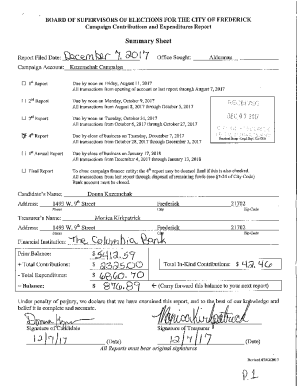 BOARD OF SUPERVISORS OF ELECTIONS FOR THE CITY OF FREDERICK
Campaign Contributions and Expenditures Report
Summary Sheet
Report Filed Date: December 7, 2017 Office Sought: Alderman
Campaign Account: Kuzemchak Campaign
1st Report Due by noon on Friday, August 11, 2017
All transactions from opening of account or last report through August 7, 2017
2nd Report Due by noon on Monday, October 9, 2017
All transactions from August 8, 2017 through October 5, 2017
3rd Report Due by noon on Tuesday, October 31, 2017
4th Report Due by close of business on Tuesday, December 7, 2017
5th Annual Report Due by close of business on January 18, 2018
All transactions from December 4, 2017 through January 13, 2018
Final Report To close campaign finance entity the 4th report may be deemed final if this is also checked.
All transactions from last report through disposal of remaining funds
Bank account must be closed.
Candidate's Name: Donna Kuzemchak
Address: W. 9th Street Frederick 21702
Street City Zip Code
Treasurer's Name: Monica Kirkpatrick
Address: W. 9th Street Frederick 21702
Street City Zip Code
Financial Institution: The Columbia Bank
Prior Balance: $5412.59
+ Total Contributions: $ Total In-Kind Contributions: $42.46
- Total Expenditure: $6860.70
= Balance: $876.89 ← (Carry forward this balance to your next report)
Under penalty of perjury, we declare that we have examined this report, and to the best of our knowledge and
belief it is complete and accurate.
Monica Kirkpatrick
Signature of Candidate Signature of Treasurer
12/7/17 (Date) 12/7/17 (Date)
All Reports must bear original signatures
Revised
P.1